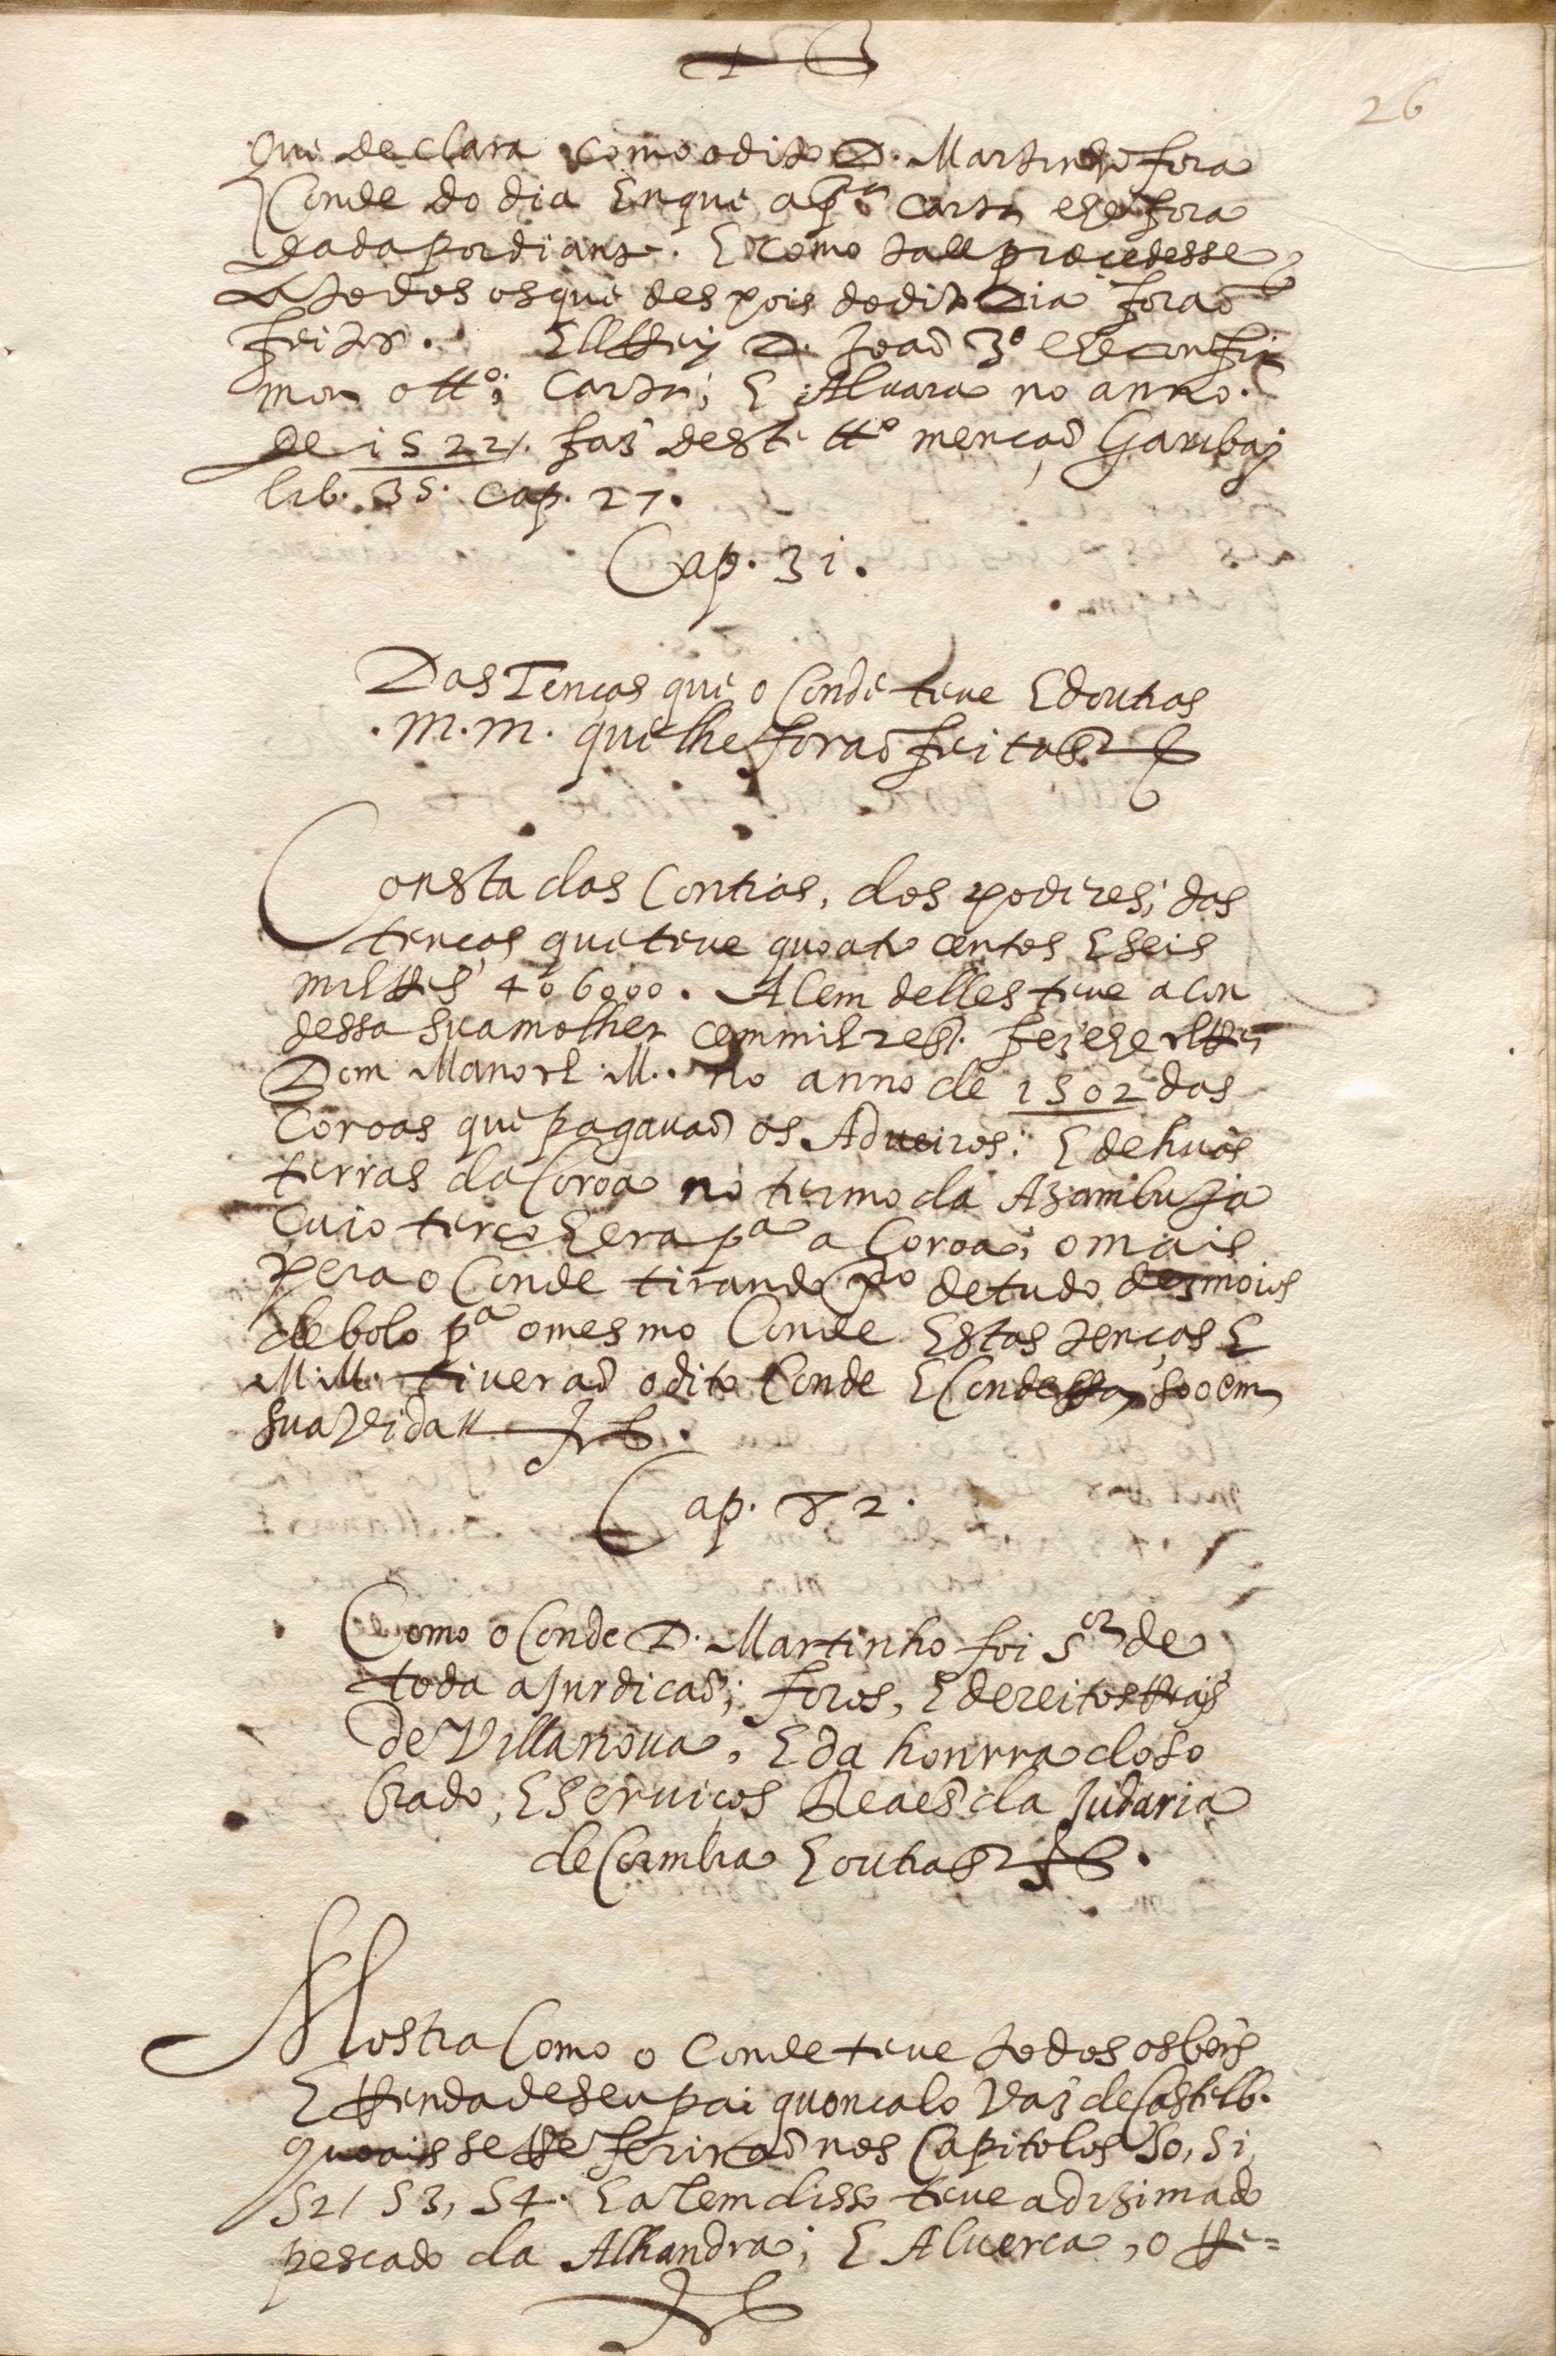 26
que declara como o dito D. Martinho fora
Conde do dia Enque a pra carta lhe fora
dada por diante. E como tall precedesse
a todos os que despois do dito dia forão
feitos. Ell Rey D. João 3º lhe confir
mou o ttº; Carta; E Aluara no anno.
de 1522/. fas deste ttº mençaõ Garibaj
lib. 35. cap. 27.
Cap. 31.
Das Tenças que o Conde teue E doutras
.M.M. que lhe foraõ feitas
Consta das Contias, dos poderes; das
tenças que teue quoatro centos E seis
mil Res 406000. Alem delles teue a Con
dessa sua molher cem mil res. fez lhe el Rej
Dom Manoel M.. no anno de 1502 das
Coroas que pagauaõ os Adueiros: E de huãs
terras da Coroa no termo da Azambuja
Cuio terço Era pª a Coroa; o mais
pera o Conde tirando pro de tudo des moios
de bolo pª o mesmo Conde Estas tenças E
M.M. tiueraõ o dito Conde E Condessa soo em
sua vida
Cap. 82.
Como o Conde D. Martinho foi sor de
toda a Jurdicaõ; foros, E dereitos Rais
de Villa noua, E da honrra do so
brado, E seruiços Reaes da Judaria
de Coimbra E outras
Mostra Como o Conde teue todos os beis
E Renda de seu pai guoncalo Vaz de Castellb.
quoais se Referiraõ nos Capitolos 50, 51,
52/ 53, 54. E alem disso teue a dizima do
pescado da Alhandra; E Aluerca, o Re=